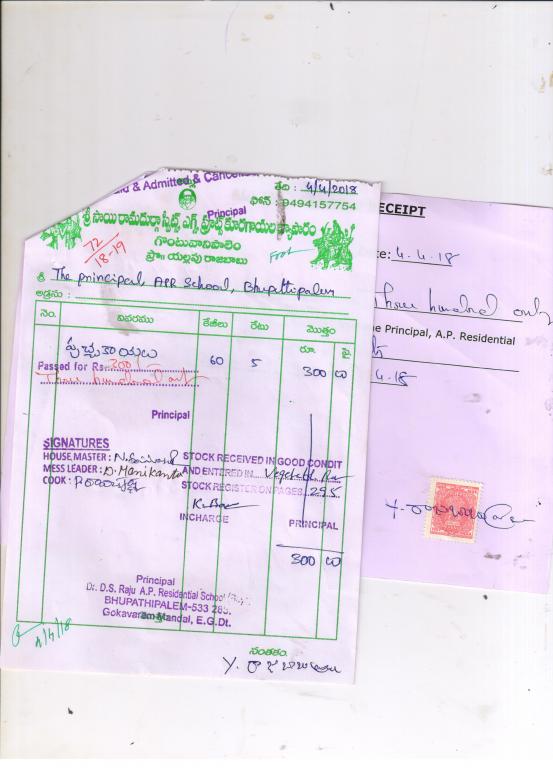 & Admitted & Cancel
Principal
తేది : 4/4/2018
ఫోన్ : 9494157754
శ్రీ సాయి రామదుర్గా స్వీట్స్ ఎగ్స్ ఫ్రూట్స్ కూరగాయల వ్యాపారం
గొంటువానిపాలెం
ప్రొ॥ యల్లపు రాజబాబు
72
18-19
శ్రీ The principal, APR School, Bhupathipalem
అడ్రసు :
నెం. వివరము కేజీలు రేటు మొత్తం
రూ. పై.
పుచ్చకాయలు 60 5 300 00
Passed for Rs. 300/-
Three hundred only
Principal
SIGNATURES
HOUSE MASTER :
MESS LEADER : D. Manikanta
COOK :
STOCK RECEIVED IN GOOD CONDIT
AND ENTERED IN Vegetable
STOCK REGISTER ON PAGES 295
INCHARGE PRINCIPAL
300 00
Principal
Dr. D.S. Raju A.P. Residential School
BHUPATHIPALEM-533 285.
Gokavaram Mandal, E.G.Dt.
4/4/18
సంతకం
Y. రాజబాబు
ECEIPT
te: 4.4.18
Three hundred only
he Principal, A.P. Residential
4.18